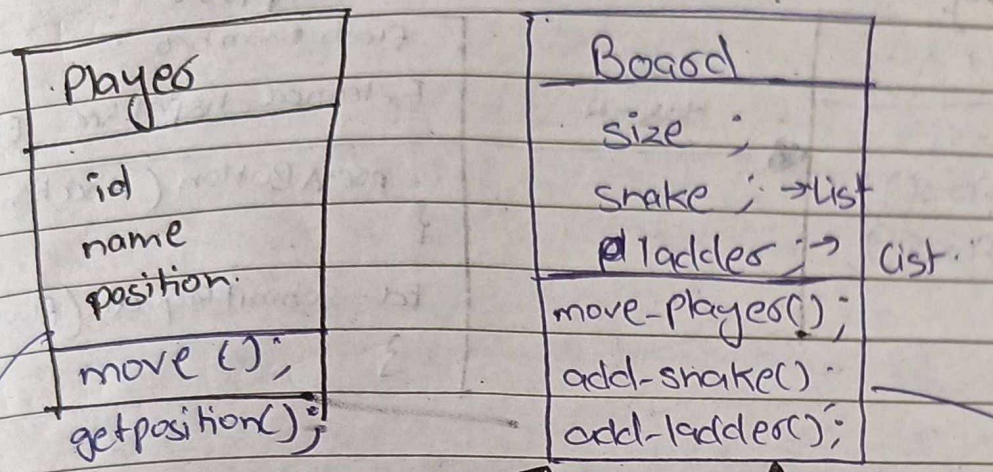 Player
id
name
position.
move ();
getposition();
Board
size ;
snake ; →List
ladder ; → List.
move-player();
add-snake()
add-ladder();